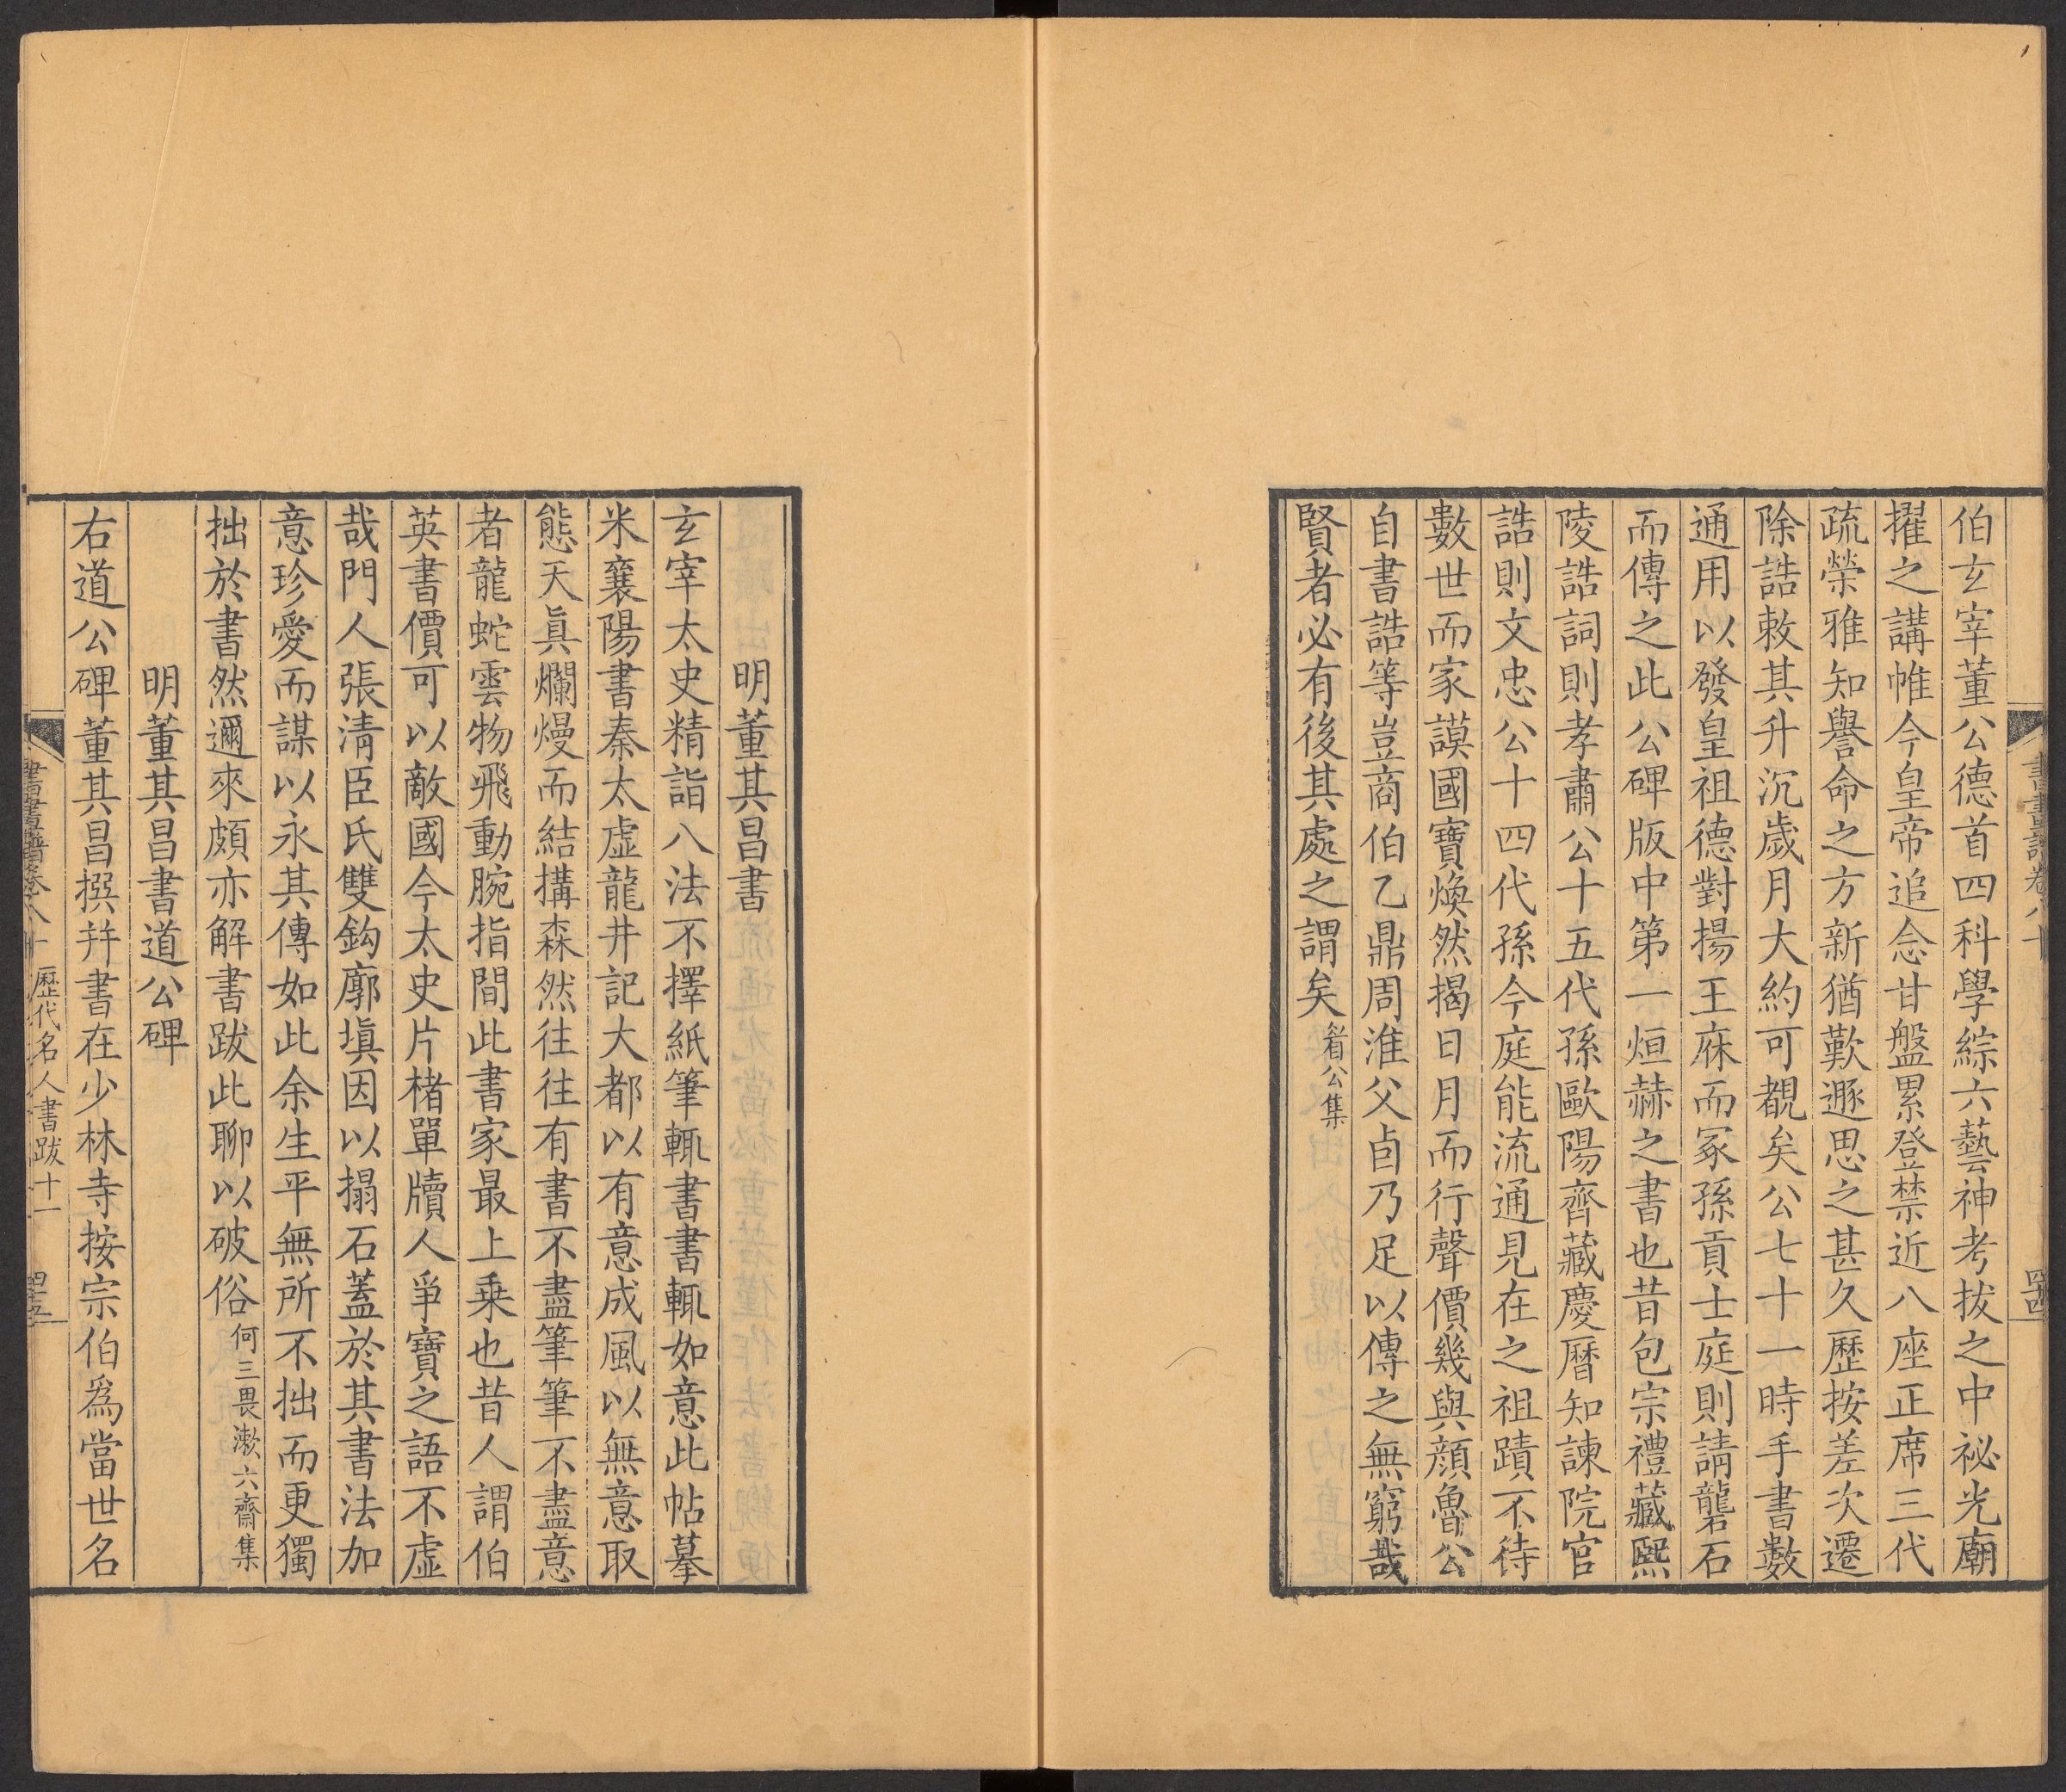 伯玄宰董公德首四科學綜六藝神考拔之中祕光廟
擢之講帷今皇帝追念甘盤累登禁近八座正席三代
疏榮雅知譽命之方新猶歎遯思之甚久歷按差次遷
除誥敕其升沉歲月大約可覩矣公七十一時手書數
通用以發皇祖德對揚王庥而冢孫貢士庭則請礱石
而傳之此公碑版中第一烜赫之書也昔包宗禮藏熙
陵誥詞則孝肅公十五代孫歐陽齊藏慶曆知諫院官
誥則文忠公十四代孫今庭能流通見在之祖蹟不待
數世而家謨國寶煥然揭日月而行聲價幾與顏魯公
自書誥等豈商伯乙鼎周淮父卣乃足以傳之無窮哉
賢者必有後其處之謂矣 公集
明董其昌書
玄宰太史精詣八法不擇紙筆輒書書輒如意此帖摹
米襄陽書秦太虛龍井記大都以有意成風以無意取
態天眞爛熳而結搆森然往往有書不盡筆筆不盡意
者龍蛇雲物飛動腕指間此書家最上乗也昔人謂伯
英書價可以敵國今太史片楮單牘人爭寶之語不虛
哉門人張淸臣氏雙鈎廓塡因以搨石蓋於其書法加
意珍愛而謀以永其傳如此余生平無所不拙而更獨
拙於書然邇來頗亦解書跋此聊以破俗 何三畏漱六齋集
明董其昌書道公碑
右道公碑董其昌撰幷書在少林寺按宗伯爲當世名
書畫譜卷八十 歷代名人書跋十一 四十五